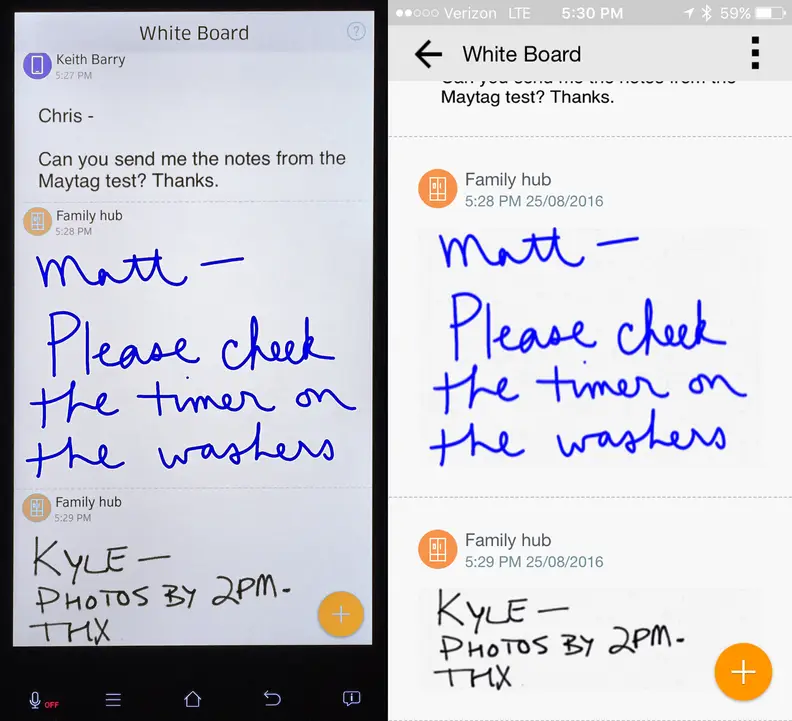 White Board
?
Keith Barry
5:27 PM
Chris -
Can you send me the notes from the
Maytag test? Thanks.
Family hub
5:28 PM
Matt —
Please check
the timer on
the washers
Family hub
5:29 PM
KYLE —
PHOTOS BY 2PM-
THX
+
OFF
Verizon LTE 5:30 PM 59%
White Board
Can you send me the notes from the
Maytag test? Thanks.
Family hub
5:28 PM 25/08/2016
Matt —
Please check
the timer on
the washers
Family hub
5:29 PM 25/08/2016
KYLE —
PHOTOS BY 2PM-
THX
+